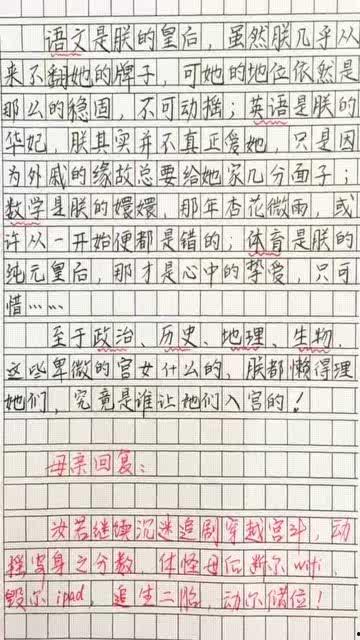 语文是朕的皇后，虽然朕几乎从
来不翻她的牌子，可她的地位依然是
那么的稳固，不可动摇；英语是朕的
华妃，朕其实并不真正爱她，只是因
为外戚的缘故总要给她家几分面子；
数学是朕的嬛嬛，那年杏花微雨，或
许从一开始便都是错的；体育是朕的
纯元皇后，那才是心中的挚爱，只可
惜……
至于政治、历史、地理、生物，
这些卑微的宫女什么的，朕都懒得理
她们，究竟是谁让她们入宫的！
母亲回复：
汝若继续沉迷追剧穿越宫斗，动
摇容身之分数，休怪母后断尔wifi，
毁尔ipad，追生二胎，动尔储位！